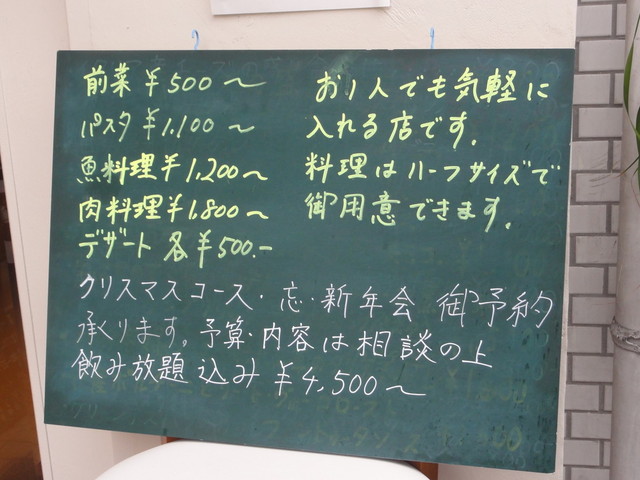 前菜 ¥500〜
パスタ ¥1,100〜
魚料理¥1,200〜
肉料理¥1,800〜
デザート 各¥500.-
お1人でも気軽に
入れる店です.
料理はハーフサイズで
御用意できます.
クリスマスコース・忘・新年会 御予約
承ります。予算・内容は相談の上
飲み放題 込み ¥4,500〜